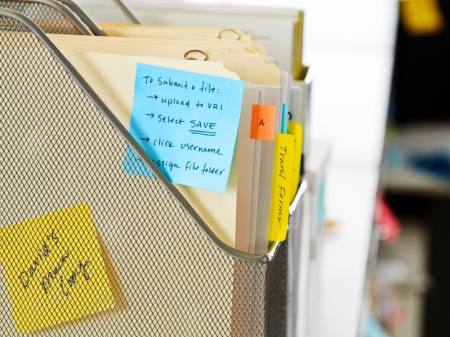 To submit a file:
→ upload to VRI
→ Select SAVE
→ click username
assign file folder
A
Travel Forms
David's